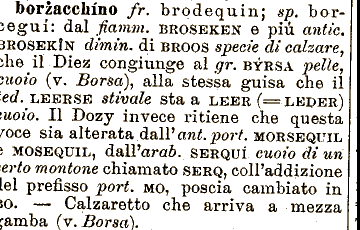 borżacchíno fr. brodequin; sp. bor-
ceguí: dal fiamm. BROSEKEN e più antic.
BROSEKÎN dimin. di BROOS specie di calzare,
che il Diez congiunge al gr. BÝRSA pelle,
cuoio (v. Borsa), alla stessa guisa che il
ted. LEERSE stivale sta a LEER (= LEDER)
cuoio. Il Dozy invece ritiene che questa
voce sia alterata dall'ant. port. MORSEQUIL
e MOSEQUIL, dall'arab. SERQUÍ cuoio di un
certo montone chiamato SERQ, coll'addizione
del prefisso port. MO, poscia cambiato in
BO. — Calzaretto che arriva a mezza
gamba (v. Borsa).